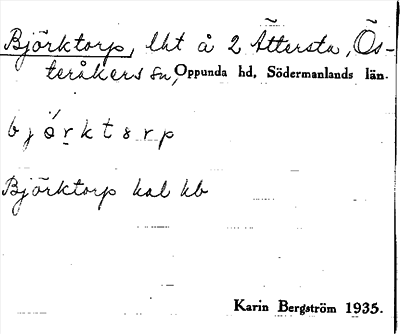 Björktorp, lht å 2 Åttersta, Ös-
teråkers sn, Oppunda hd, Södermanlands län.
bjǿrktorp
Björktorp hal kb
Karin Bergström 1935.